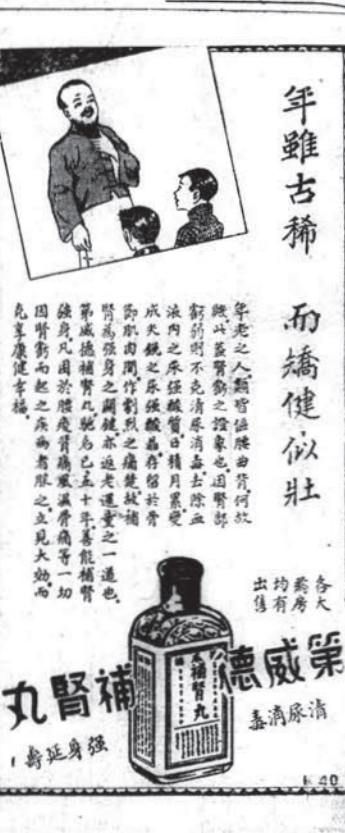 年雖古稀 而矯健似壯
年老之人.類皆傴腰曲背.何故
歟.此蓋腎虧之證象也.因腎部
虧弱.則不克清尿消毒.去除血
液內之尿强酸質.日積月累.變
成尖銳之尿强酸晶.存留於骨
節肌肉間.作劇烈之痛楚.故補
腎為强身之關鍵.亦返老還童之一道也.
第威德補腎丸.馳名已五十年.善能補腎
强身.凡困於腰痠背痛.風濕骨痛等一切
因腎虧而起之疾病者.服之.立見大効.而
克享康健幸福.
各大
葯房
均有
出售
第威德補腎丸
清尿消毒
强身延壽!
補腎丸
40